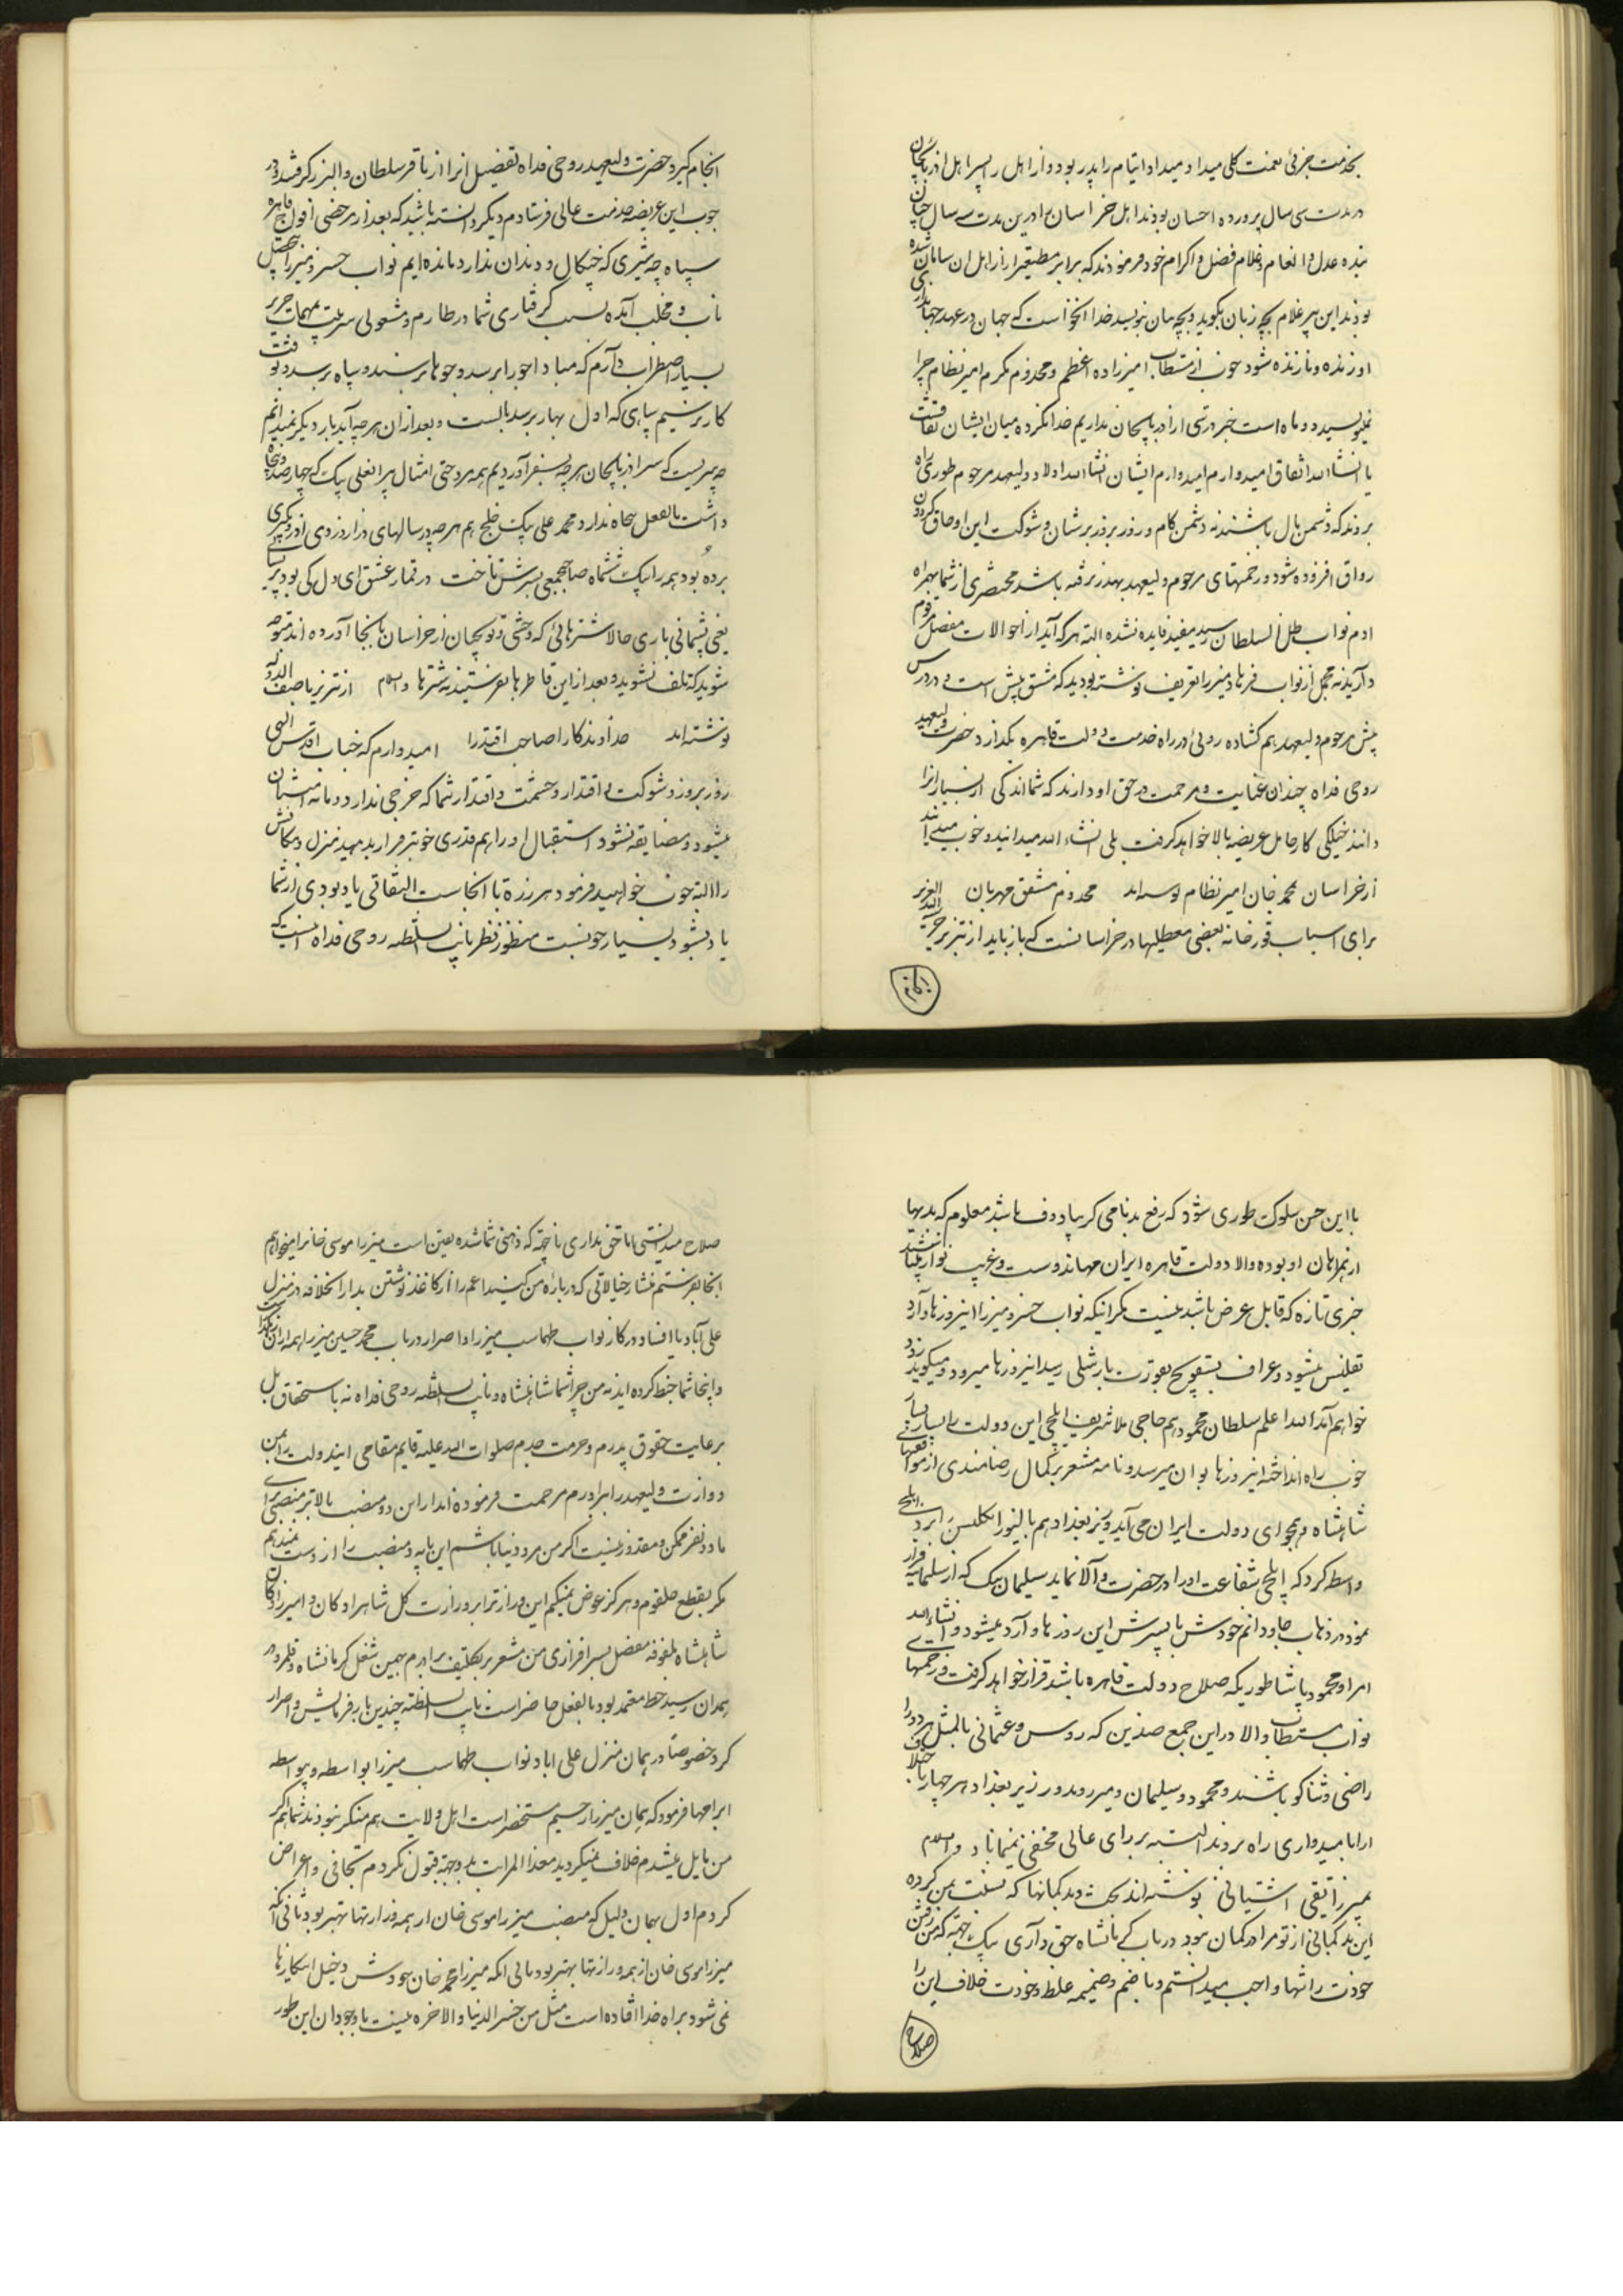 بخدمت جزئی نعمت کلی میداد و میداد ایتام را پدر بود و ارامل را پسر اهل اذربایجان
در مدت سی سال پرورده احسان بودند اهل خراسان در این مدت سه سال چنان
بنده عدل و انعام و غلام فضل و اکرام خود فرمودند که برابر مطیعتر از اهل ان سامان شده
بودند این پیر غلام بچه زبان بگوید و بچه بیان بنویسد خدا انخواست که جهان در عهد جهانداری
او زنده و نازنده شود چون از مستطاب امیرزاده اعظم و مخدوم مکرم امیر نظام چرا
نمینویسید دو ماه است خبر درستی از اذربایجان نداریم خدا نکرده میان ایشان نقاقتست
یا انشاالله اتفاق امیدوارم امیدوارم ایشان انشاالله اولاد ولیعهد مرحوم طوری راه
بروند که دشمن مال باشند نه دشمن کام و روز بروز بر شان و شوکت این اوجاق گردون
رواق افزوده شود و زحمتهای مرحوم ولیعهد بهدر نرفته باشد مختصری از شما بهمراه
ادم نواب ظل السلطان رسید مفید فایده نشده البته هر که آید از احوالات مفصل مرقوم
دارید نه مجمل از نواب فرهاد میرزا تعریف نوشته بودید که مشق پیش است و در درس
پیش مرحوم ولیعهد هم گشاده روئی در راه خدمت دولت قاهره بگذارد حضرت ولیعهد
روحی فداه چندان عنایت و مرحمت در حق او دارند که شما اندکی از بسیار انرا
دانند خیلکی کار حامل عریضه بالا خواهد گرفت بلی انشاء الله میدانید و خوب میدانید
از خراسان محمد خان امیر نظام نوشته‌اند مخدوم مشفق مهربان
برای اسباب قورخانه بعضی معطلیها در خراسانست که باز باید از تبریز
انجام گیرد حضرت ولیعهد روحی فداه تفضیل انرا از باقر سلطان و البرز گرفتند و در
جوب این عریضه خدمت عالی فرستادم دیگر دانسته باشید که بعد از مرخصی افواج قاهره
سپاه چه شیری که چنگال و دندان ندارد مانده‌ایم نواب خسرو میرزا
ناب و مخلب آنده بسبب گرفتاری شما در طارم و مشغولی سرپرت بمهمات
بسیار اضطراب دارم که مبادا جو را برسد و جوها برسند و سپاه نرسد
کار نرسیم سپاهی که اول بهار برسد بایست و بعد از ان هر چه آید بار دیگر نمیدانم
چه سریست که سر اذربایجان هر چه بسفر آوردیم همه مردحتی امثال پیرانعلی بیک که چهارصد و پنجاه
داشت بالفعل پنجاه ندارد محمد علی بیک خلج هم هر چه در سالهای دراز دزدی از دیگری
برده بود همه را بیک ششماه صاحبجمعی بسرش تاخت در قمار عشق ای دل کی بود پشیمانی
یعنی پشیمانی باری حالا شترهائی که وحشی توپچیان از خراسان بانجا آورده‌اند متوجه
شوید که تلف نشوید و بعد از این قاطرها بفرستید نه شترها والسلام از تبریز باصف الدوله
نوشته‌اند خداوندگارا صاحب اقتدارا امیدوارم که جناب اقدس الهی
روز بروز شوکت و اقتدار و حشمت و اقتدار شما که خرجی ندارد
میشود و مضایقه نشود استقبال او را هم قدری خوبتر قرار بدهید منزل و مکانش
را البته خوب خواهید فرمود هر روزه تا انجاست التفاتی یاد بودی از شما
یاد بشود بسیار خوبست منظور نظر نایب السلطنه روحی فداه اینست که
با این حسن سلوک طوری شود که رفع بدنامی کریبا دوف باشد معلوم که بدیها
از همراهان او بوده والا دولت قاهره ایران مهماندوست و غریب نواز
خبری تازه که قابل عرض باشد نیست مگر انیکه نواب خسرو میرزا اینروزها وارد
تفلیس میشود و عراف بسقویچ بعورت بارشلی رسید اینروزها میرود و میگوید زود
خواهم آمد الله اعلم سلطان محمود هم حاجی ملا شریف ایلچی این دولت را بسیار بسیار
خوب راه انداخته اینروزها بوان میرسد و نامه مشعر بر کمال رضامندی از موافقتها
شاهنشاه و همجوای دولت ایران می‌آید وزیر بغداد هم بالیوز انگلیس را نزد ایلچی
واسطه کرد که ایلچی شفاعت او را در حضرت والا نماید سلیمان بیک که از سلیمانیه فرار
نمود در ذهاب جا و دانم خودش با پسرش این روزها وارد میشود و انشاءالله
امر او محمود پاشا طوریکه صلاح دولت قاهره باشد قرار خواهد گرفت و زحمتهای
نواب مستطاب والا در این جمع ضدین که روس و عثمانی بالمثل هر دو را
راضی و شاکر باشند و محمود و سلیمان و میر روندوز و وزیر بغداد هر چهار
را بامیدواری راه بردند البته بر رای عالی مخفی نمیماناد والسلام
بمیرزا تقی اشتیانی نوشته‌اند بحث و بدگمانها که نسبت بمن کرده
این بدگمانی از تو مرا در گمان نبود در باب کرمانشاه حق داری بیک جهته که من رفتن
خودت را تنها واجب میدانستم و با ضم و ضمیمه غلط و خودت خلاف این را
صلاح میدانستی اما حق نداری باحته که ذهنی شما شده یقین است میرزا موسی خانرا میخواهم
انجا بفرستم منشاء خیالاتی که درباره من کنید اعم را از کاغذ نوشتن بدار الخلافه در منزل
علی آباد یا افساد در کار نواب طهماسب میرزا و اصرار در باب محمد حسین میرزا
و اینجا شما خبط کرده‌اید نه من چرا شما شاهنشاه و نایب السلطنه روحی فداه نه باستحقاق بل
برعایت حقوق پدرم و حرمت جدم صلوات الله علیه قایم مقامی ایندولت را بمن
و وزارت ولیعهد را برادرم مرحمت فرموده‌اند از این دو منصب بالاتر منصبی برای
ما دو نفر ممکن و مقدور نیست اگر من مرد دنیا باشم این پایه و منصب را از دست نمیدهم
مگر بقطع حلقوم و هرگز عوض نمیکنم این وزارت را بوزارت کل شاهزادگان و امیرزادگان
شاهنشاه ملفوفه مفصل بسرافرازی من مشعر بر تکلیف برادرم بهمین شغل کرمانشاه و قلمرو
همدان رسید خط معتمد بود بالفعل حاضر است نایب السلطنه چندین بار فرمایش و اصرار
کرد خصوصاً در همان منزل علی اباد نواب طهماسب میرزا بواسطه و بیواسطه
ابرامها فرمود که همان میرزا رحیم مستحضر است اهل ولایت هم منکر نبودند شما هم اگر
من مایل میشدم خلاف نمیکردید معذا المراتب بلا وجه قبول نکردم تجافی و اعراض
کردم اول بهمان دلیل که منصب میرزا موسی خان از همه وزارتها بهتر بود ثانی آنکه
میرزا موسی خان از همه وزارتها بهتر بود ثانی انکه میرزا محمد خان خودش دخیل اینکارها
نمی‌شود براه خدا افتاده است مثل من خسر الدنیا والاخره نیست با وجود ان این طور
صلاح